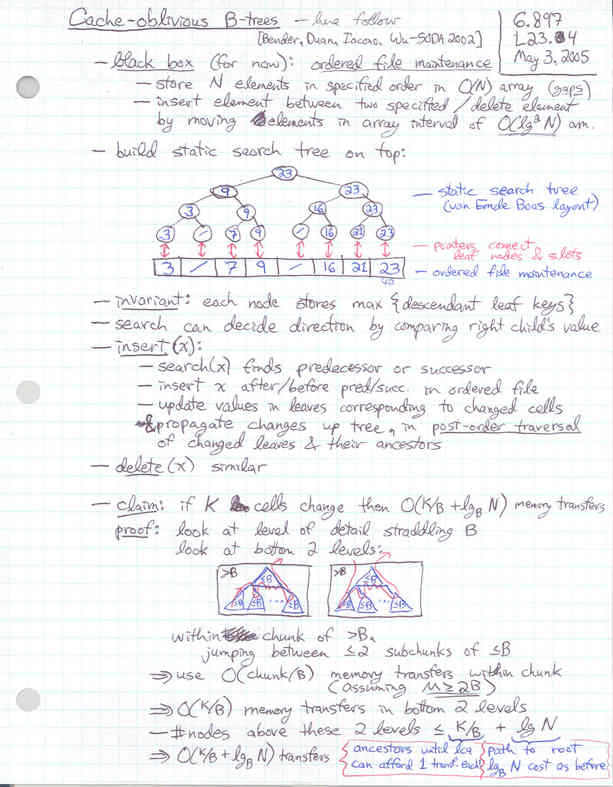 Cache-oblivious B-trees - here follow
[Bender, Duan, Iacono, Wu - SODA 2002]
6.897
L23.4
May 3, 2005
- black box (for now): ordered file maintenance
- store N elements in specified order in O(N) array (gaps)
- insert element between two specified / delete element
by moving elements in array interval of O(lg² N) am.
- build static search tree on top:
23
9 23
3 9 16 23
3 - 7 9 - 16 21 23
3 - 7 9 - 16 21 23
- static search tree
(van Emde Boas layout)
- pointers connect
leaf nodes & slots
- ordered file maintenance
- invariant: each node stores max {descendant leaf keys}
- search can decide direction by comparing right child's value
- insert(x):
- search(x) finds predecessor or successor
- insert x after/before pred/succ. in ordered file
- update values in leaves corresponding to changed cells
& propagate changes up tree, in post-order traversal
of changed leaves & their ancestors
- delete(x) similar
- claim: if K cells change then O(K/B + lg_B N) memory transfers
proof: look at level of detail straddling B
look at bottom 2 levels:
>B ≤B ≤B ≤B ... ≤B
>B ≤B ≤B ≤B ... ≤B
within chunk of >B,
jumping between ≤2 subchunks of ≤B
⇒ use O(chunk/B) memory transfers within chunk
(assuming M≥2B)
⇒ O(K/B) memory transfers in bottom 2 levels
- #nodes above these 2 levels ≤ K/B + lg N
⇒ O(K/B + lg_B N) transfers
ancestors until lca
can afford 1 transf. each
path to root
lg_B N cost as before